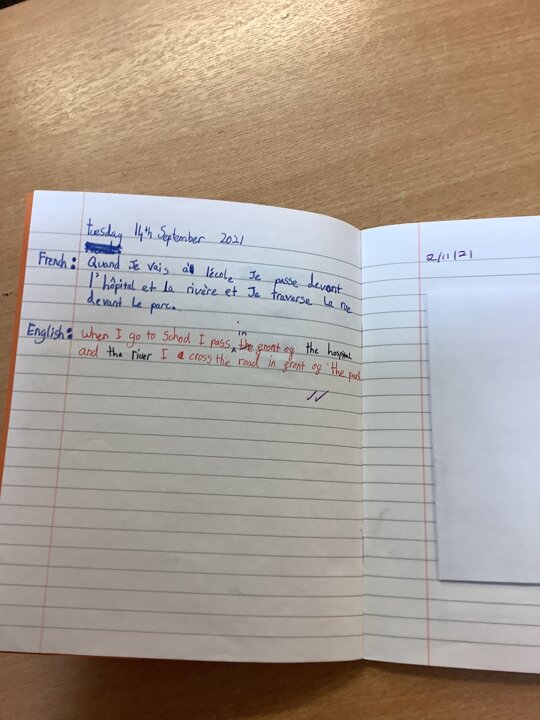 tuesday 14th September 2021
French: Quand Je vais à l'école Je passe devant
l'hôpital et la rivère et Je traverse la rue
devant le parc.
English: when I go to School I pass in front of the hospital
and the river I cross the road in front of the park
2/11/21